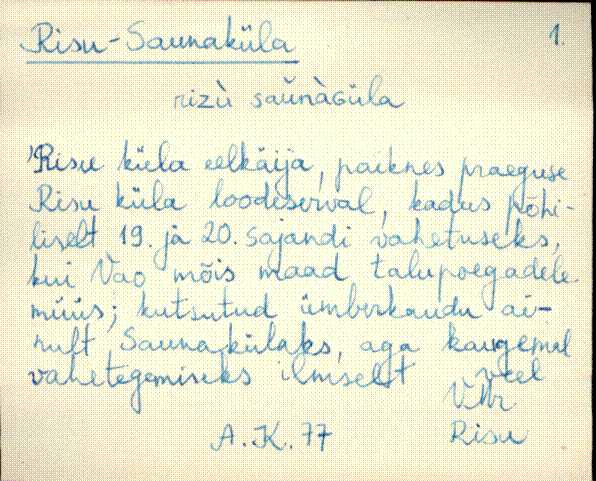 Risu-Saunaküla 1.
rizù saŭnàGüla
'Risu küla eelkäija, paiknes praeguse
Risu küla loodeserval, kadus põhi-
liselt 19. ja 20. sajandi vahetuseks,
kui Vao mõis maad talupoegadele
müüs; kutsutud ümberkaudu ai-
nult Saunakülaks, aga kaugemal
vahetegemiseks ilmselt veel
VMr
A.K.77 Risu